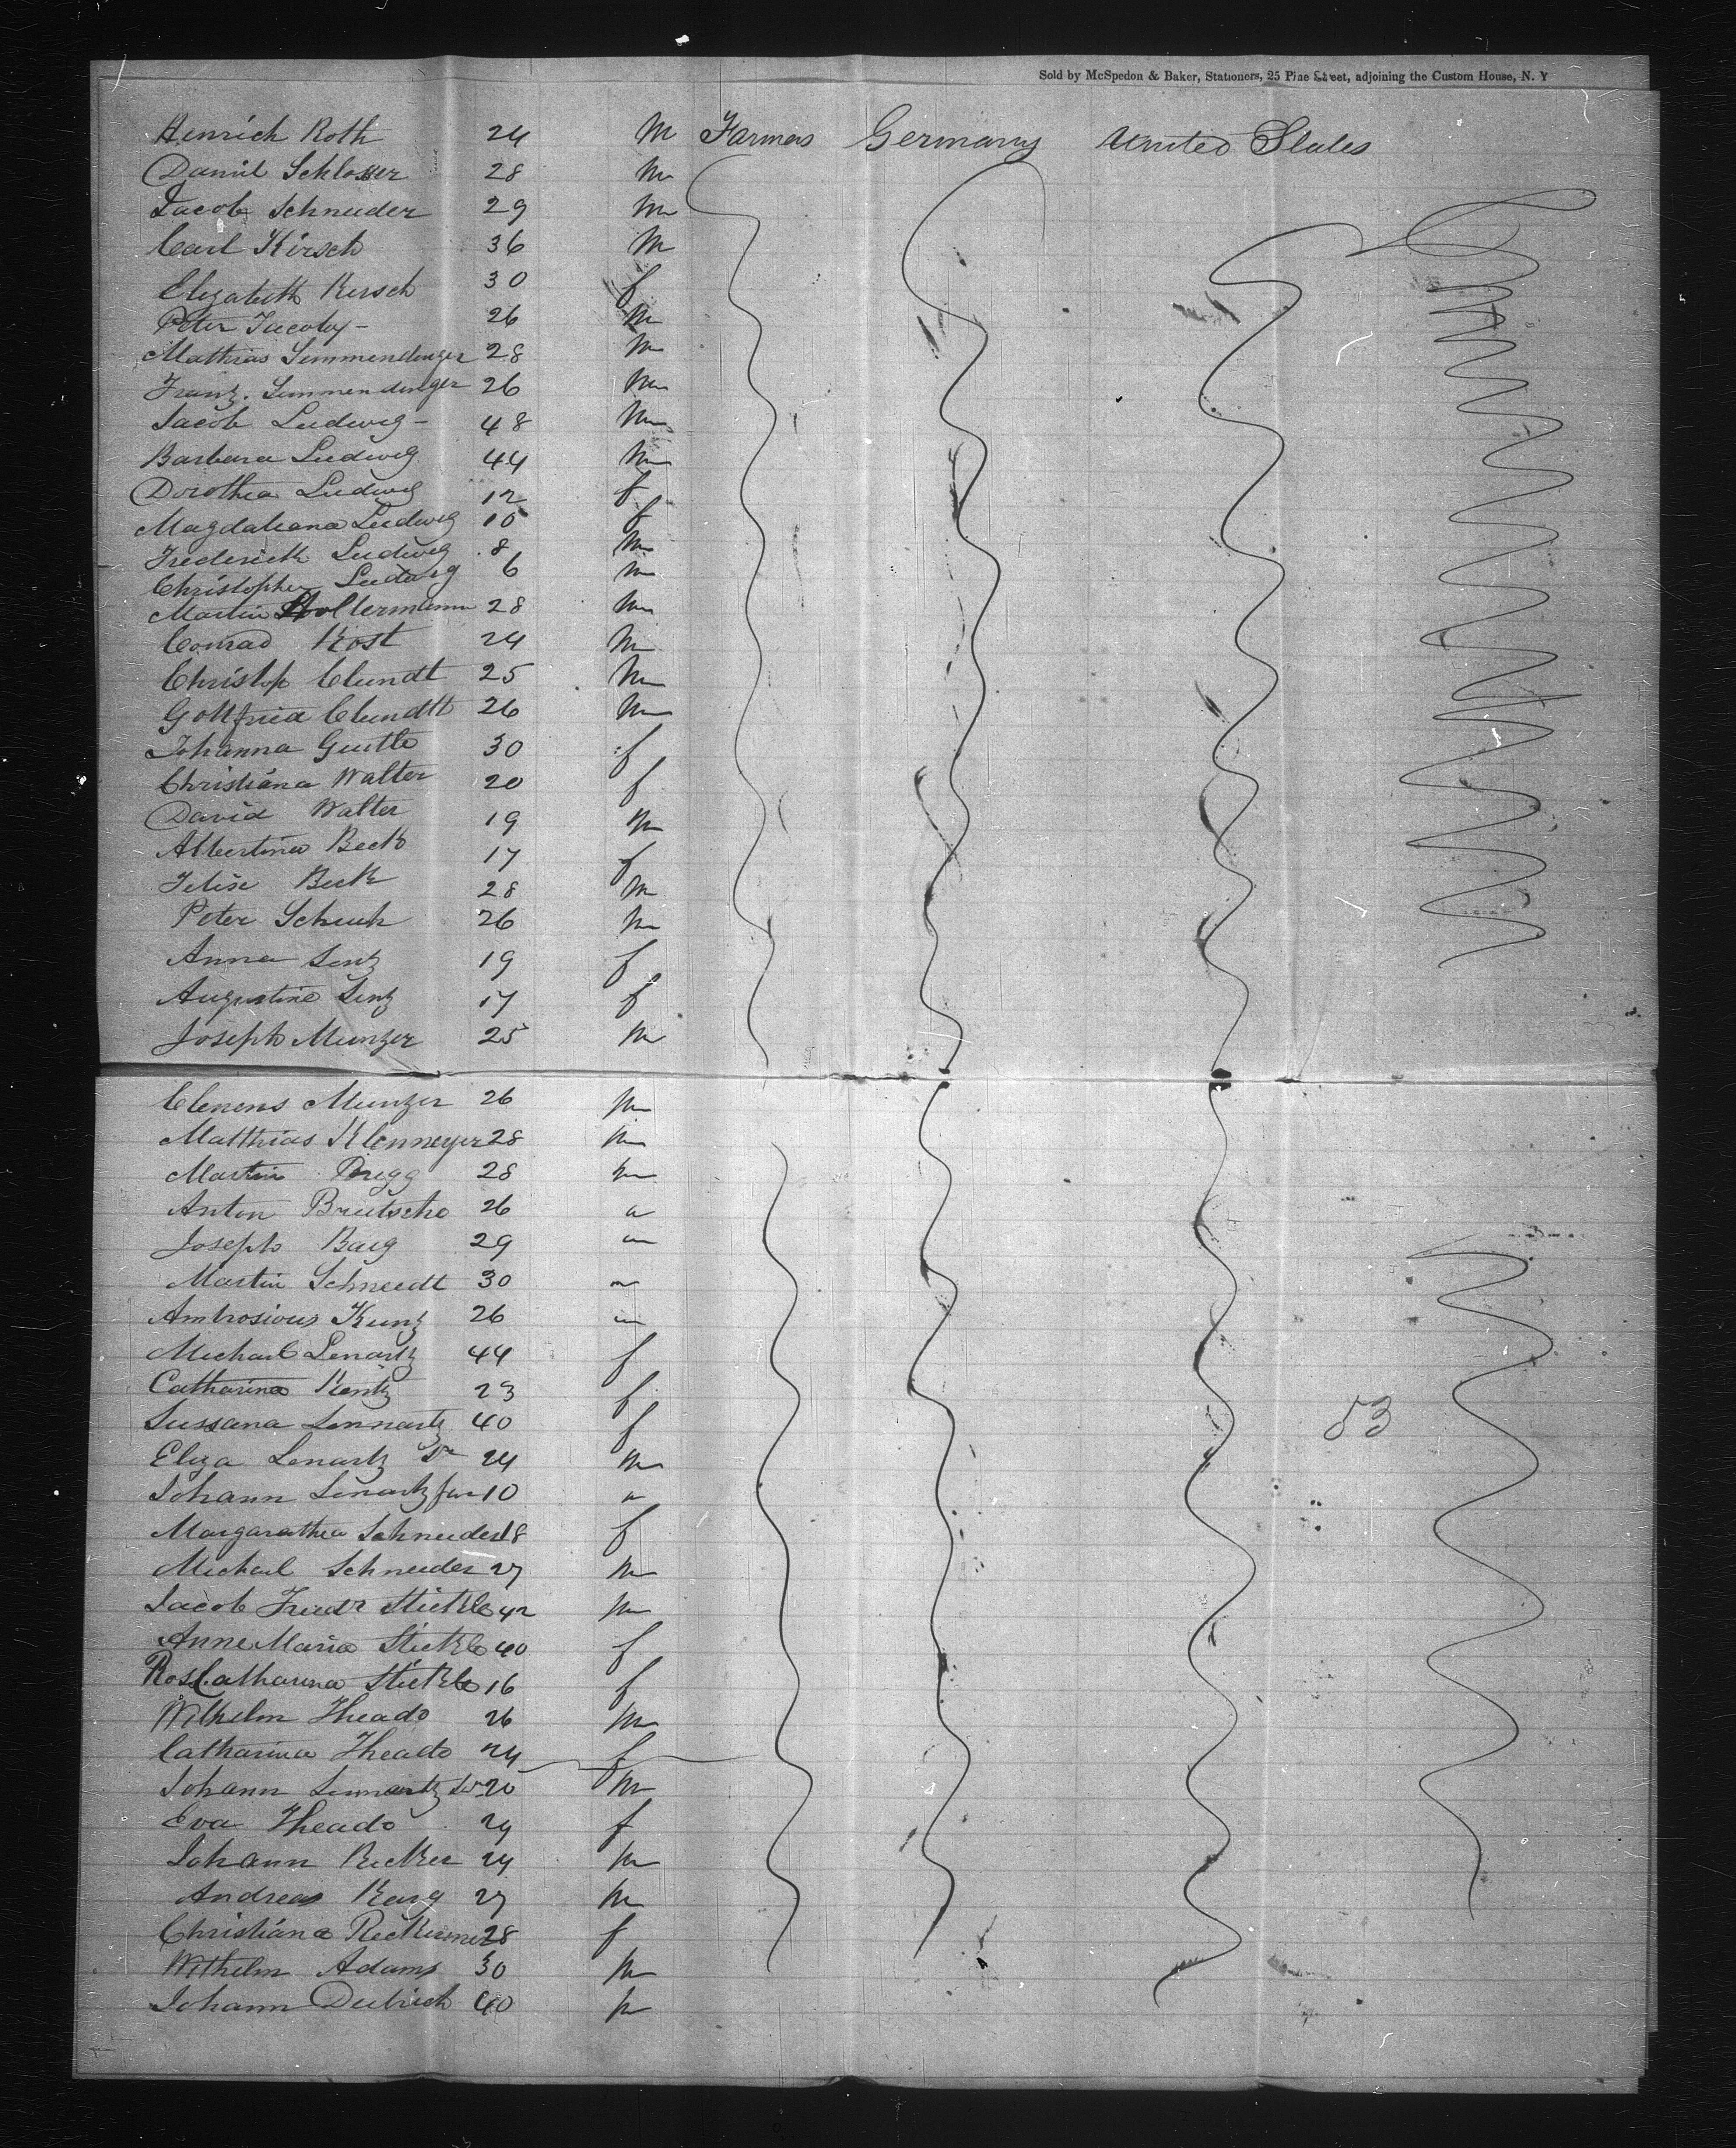 Sold by McSpedon & Baker, Stationers, 25 Pine Street, adjoining the Custom House, N. Y
Heinrich Roth 24 M Farmers Germany United States
Daniel Schlosser 28 m
Jacob Schneider 29 m
Carl Kirsch 36 m
Elizabeth Kirsch 30 f
Peter Jacoby - 26 m
Mathias Simmendinger 28 m
Franz. Simmendinger 26 m
Jacob Ludwig - 48 m
Barbara Ludwig 44 m
Dorothea Ludwig 12 f
Magdaleana Ludwig 10 f
Frederick Ludwig 8 m
Christopher Ludwig 6 m
Martin Holtermann 28 m
Conrad Kost 24 m
Christop Clundt 25 m
Gottfried Clundtt 26 m
Johanna Guttle 30 f
Christiana Walter 20 f
David Walter 19 m
Albertina Beck 17 f
Felix Beck 28 m
Peter Schuck 26 m
Anna Lenz 19 f
Augustine Lenz 17 f
Joseph Munzer 25 m
Clemens Munzer 26 m
Matthias Klenmeyer 28 m
Martin Bregg 28 m
Anton Brutsche 26
Joseph Barg 29 m
Martin Schneidt 30 m
Ambrosious Kunz 26 m
Michael Lenartz 44 f
Catharina Kentz 23 f
Sussana Lennartz 40 f
Eliza Lenartz 24 m
Johann Lenartz jun 10
Margarathea Schneider 18 f
Michael Schneider 27 m
Jacob Friedr Stickle 42 m
Anne Maria Stickle 40 f
Ros Catharina Stickle 16 f
Wilhelm Theado 26 m
Catharina Theado 24 f
Johann Lennartz Sr 20 m
Eva Theado 24 f
Johann Ricker 24 m
Andreas Karg 27 m
Christiana 28 f
Wilhelm Adams 30 m
Johann Deitrich 40 m
53